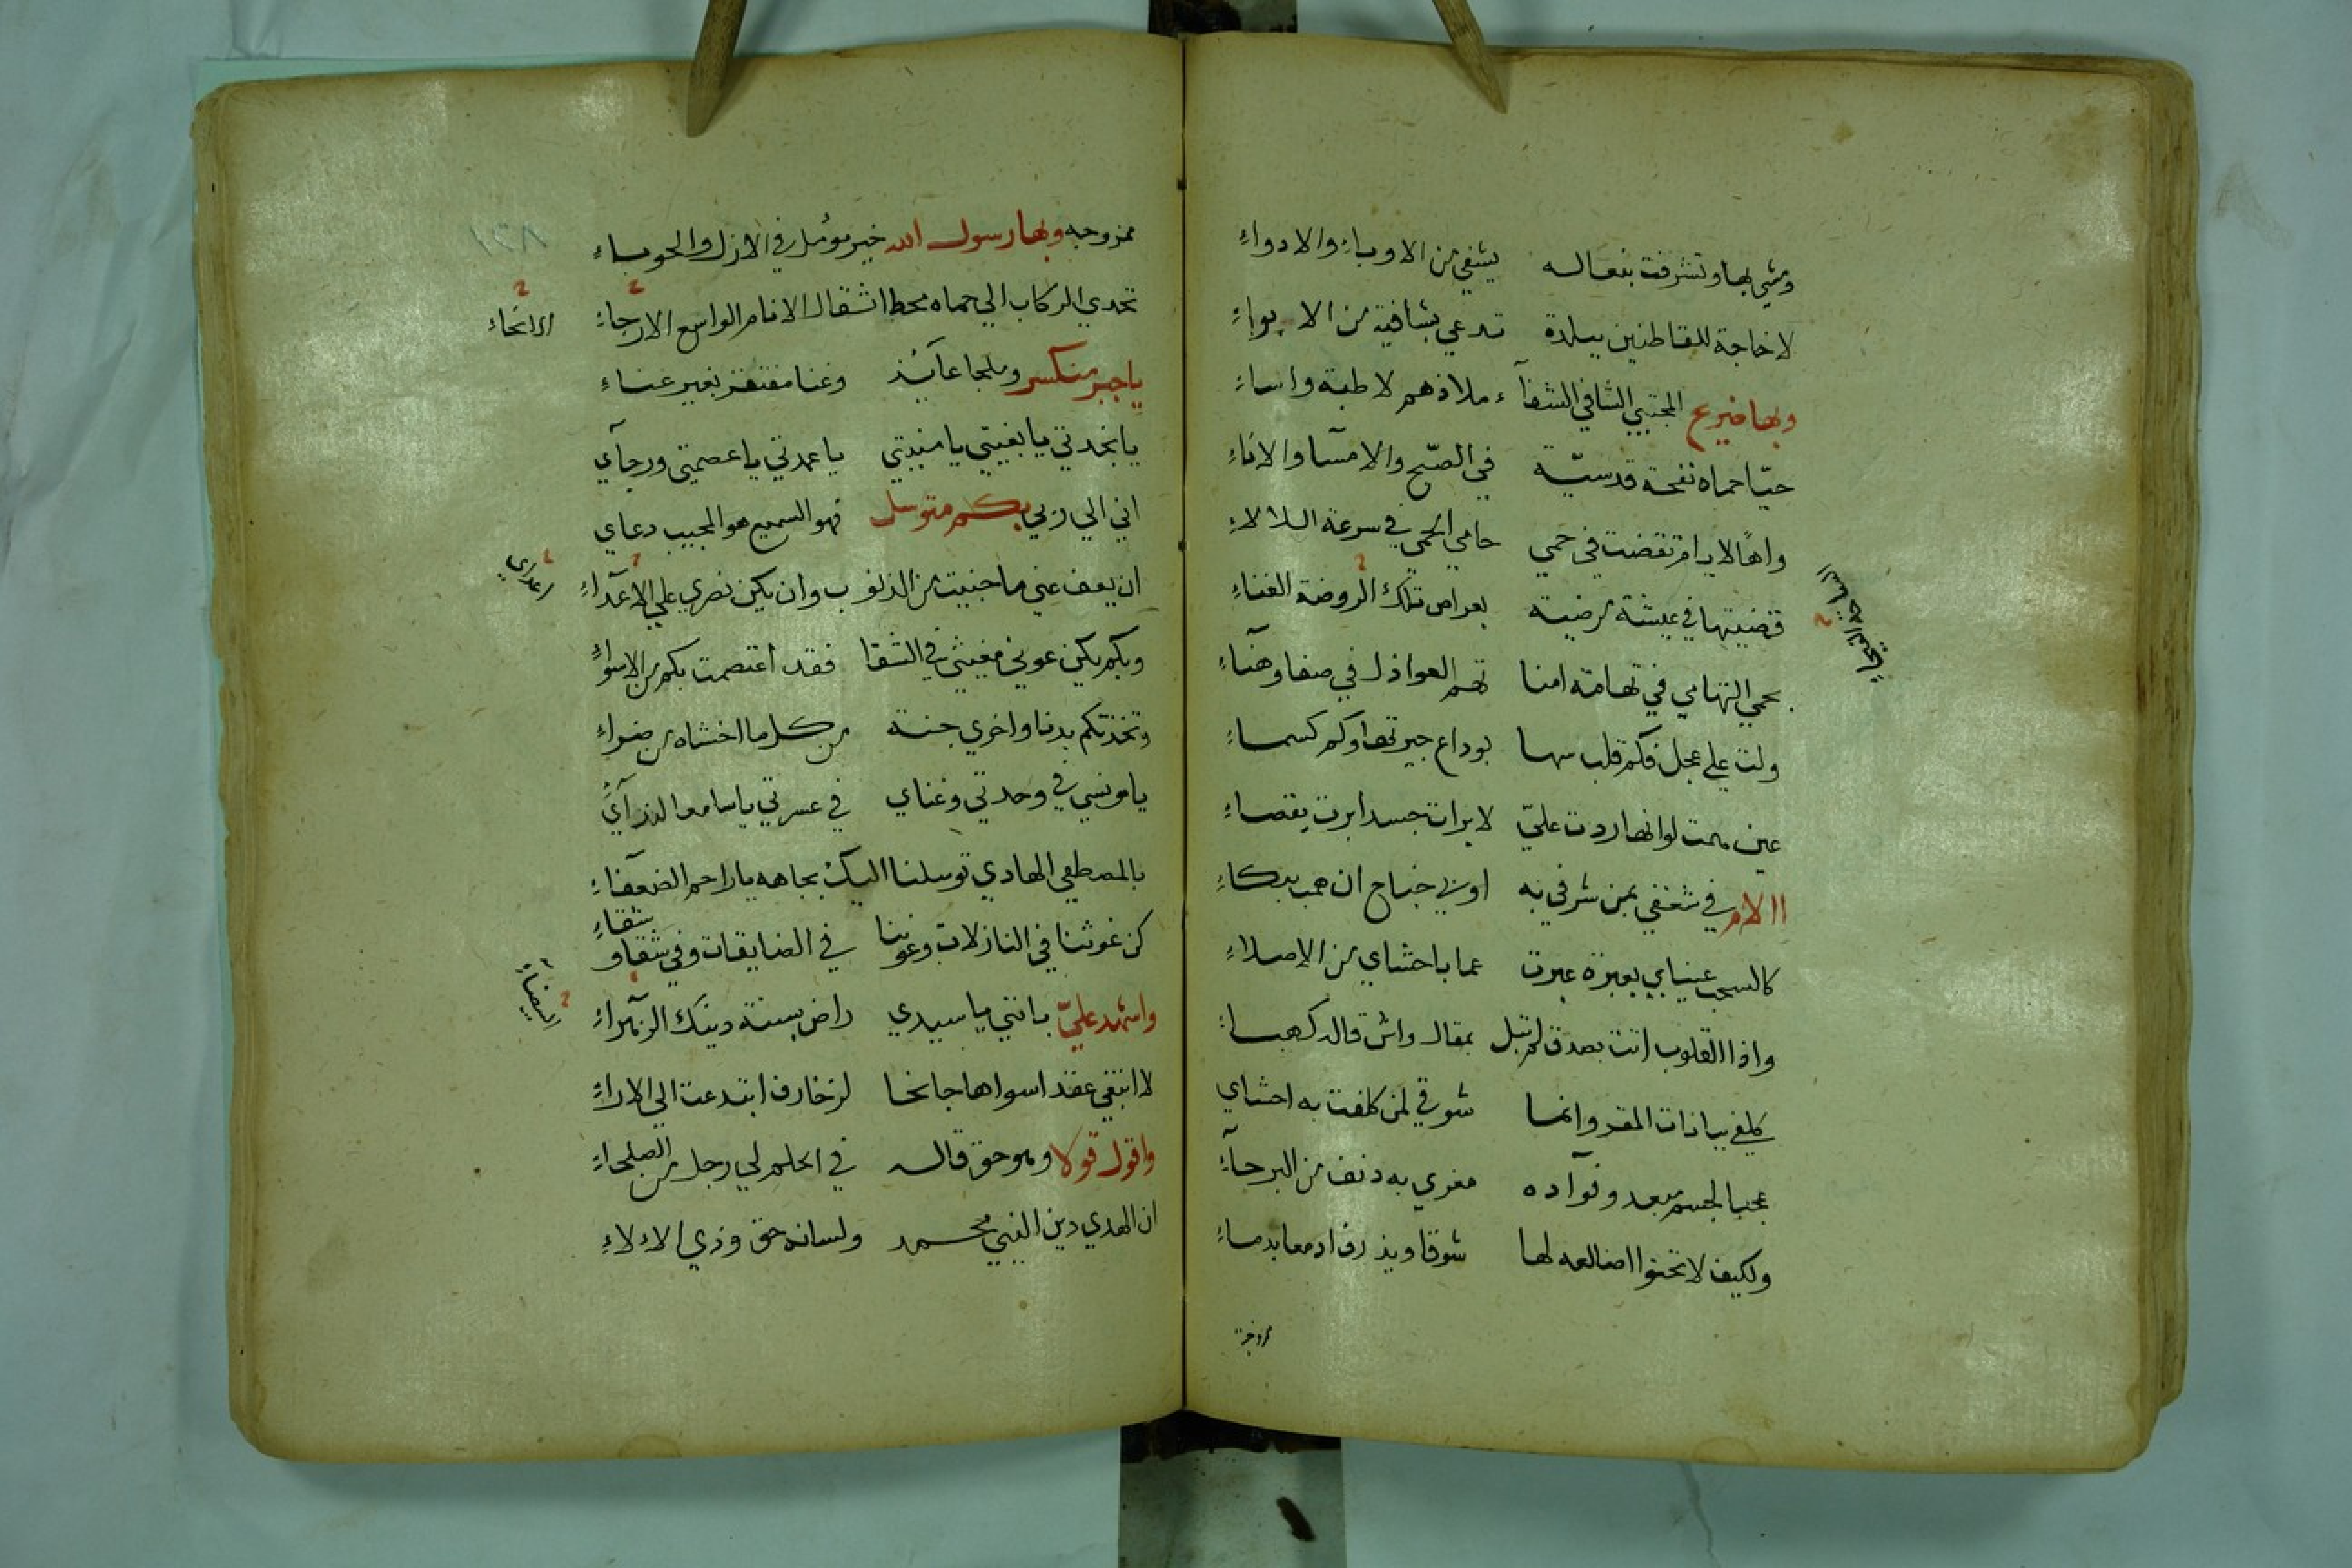 ومشي بها وتشرفت بنعاله يشفي من الاوباء والادواء
لا خاجة للقاطنين ببلدة تدعي بشافية من الابواء
وبها ضريح المجتبي الشافي الشفآء ملاذهم لاطبة واساء
حيّا حماه نفحة قدسيّة في الصبح والامسآ والاناء
واهًا لايام تقضت في حمي حامي الحمي في سرعة اللالاء
قضيتها في عيشة مرضية بعراص تلك الروضة الغناء
بحمي التهامي في تهامة امنا تهم العواذل في صفا وهنآء
ولت علي عجل فكم قلب سها بوداع جيرتها وكم كسماء
عين همت لو انها ردت عليّ لابرات جسدا برت بقصاء
االام في شغفي بمن شرفي به او في جناح ان همت ببكاء
كالسحب عيناي بعبرة عبرت عما باحشاي من الاصلاء
واذا القلوب اتت بصدق لم تبل بمقال واش قالد كهباء
كلفي ببانات المقر وانما شوقي لمن كلفت به احشاي
عجبا لجسم مبعد وفوآده مغري به دنف من البرحآء
ولكيف لا تحنوا اضالعه لها شوقا ويذرف ادمعا بدماء
ممزوجة
ممزوجه وبها رسول الله خير مؤمل في الازل والحوباء
تحدي الركاب الي حماه محط اثقال الانام الواسع الارجاء
الانحاء
يا جبر منكسر وملجا عآئذ وغنا مفتقر بغير عناء
يا نجدتي يا بغيتي يا منيتي يا عمدتي يا عصمتي ورجآي
اني الي ربي بكم متوسل فهو السميع هو المجيب دعاي
ان يعف عني ما جنيت من الذنوب وان يكن نصري علي الاعدآء
اعداي
وبكم يكن عوني مغيثي في الشقا فقد اعتصمت بكم من الاسواء
وتخذتكم بدنا واخري جنة من كل ما اخشاه من ضراء
يا مونسي في وحدتي وغناي في عسرتي يا سامعا لندآي
بالمصطفي الهادي توسلنا اليك بجاهه يا راحم الضعفآء
كن غوثنا في النازلات وعوننا في الضايقات وفي شقا و شقاء
واشهد عليّ بانني يا سيدي راض بسنة دينك الزهرآء
البيضاء
لا ابتغي عقدا سواها جانحا لزخارف ابتدعت الي الاراء
واقول قولا وهو حق قاله في الحلم لي رجل من الصلحاء
ان الهدي دين النبي محمد ولسانه حق وذي الالاء
١٣٨